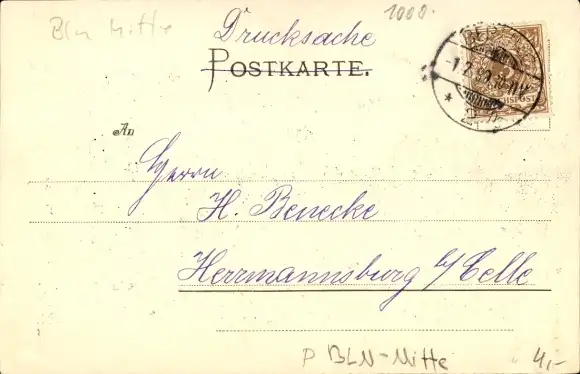 Bln Mitte
Drucksache
1000.
POSTKARTE.
An
Herrn
H. Benecke
Herrmannsburg b/ Celle
P BLN-Mitte 4,-